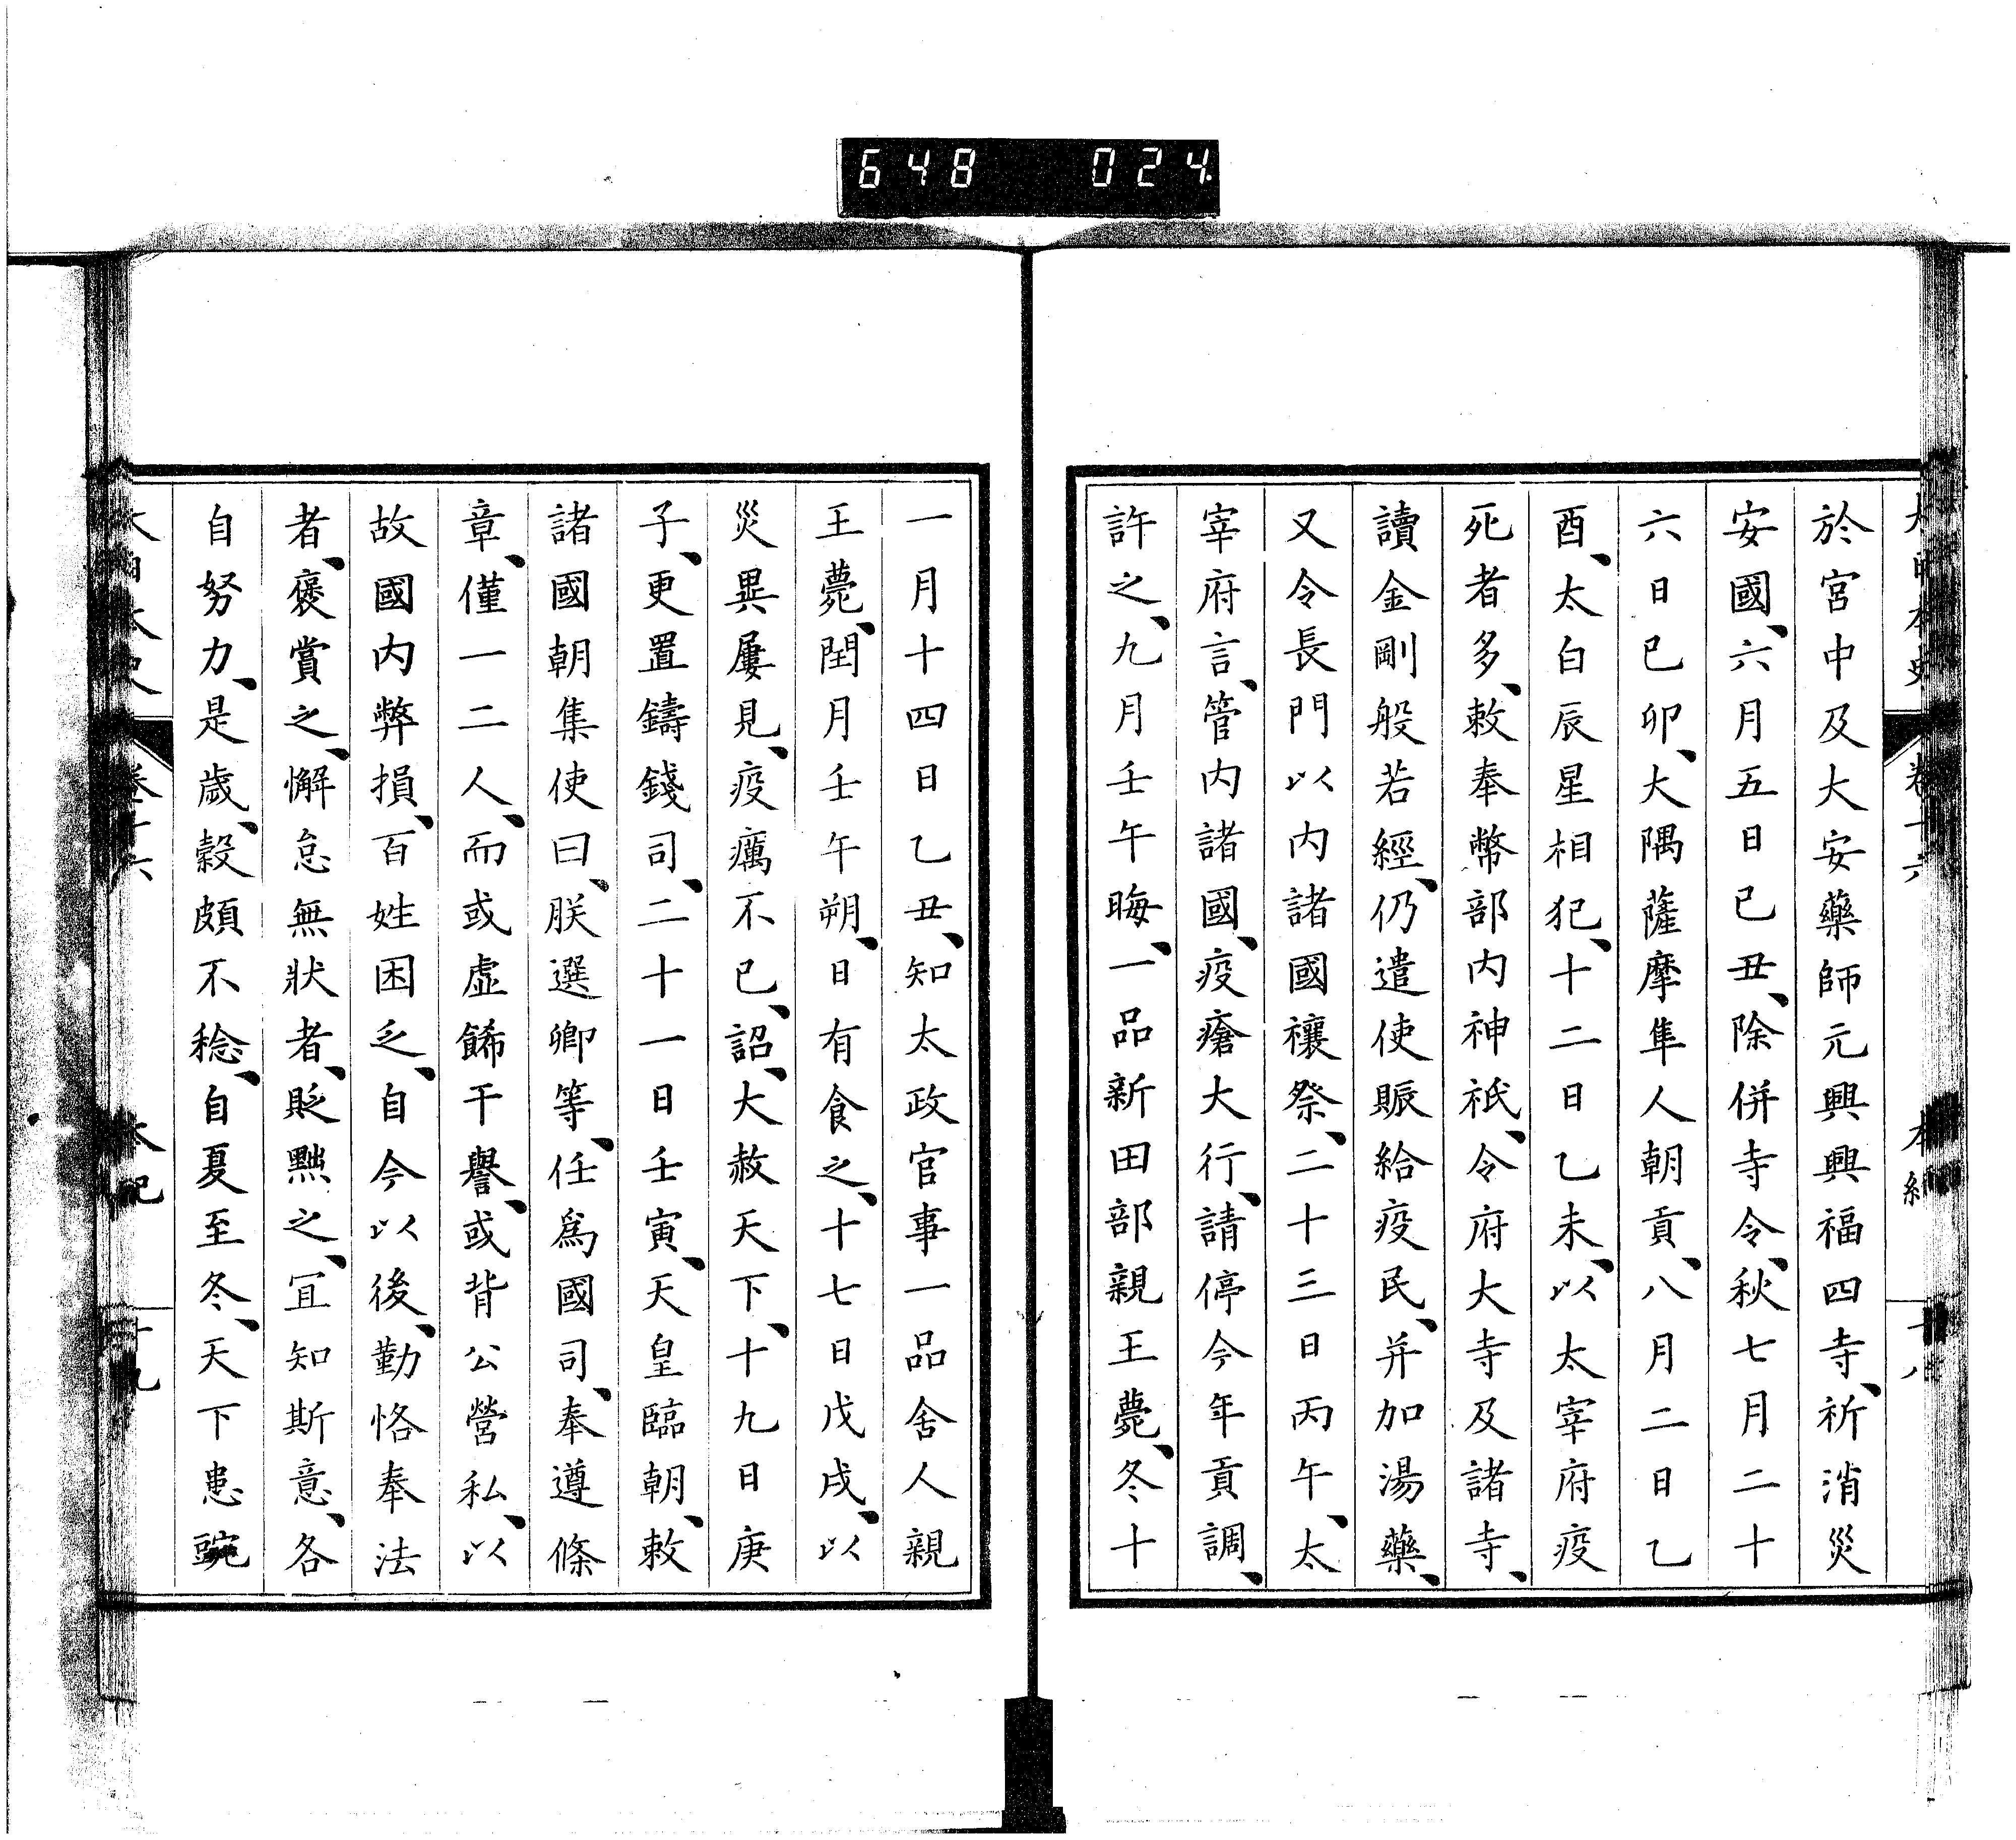 648 024
於宮中及大安藥師元興興福四寺、祈消災
安國、六月五日己丑、除併寺令、秋七月二十
六日已卯、大隅薩摩隼人朝貢、八月二日乙
酉、太白辰星相犯、十二日乙未、以太宰府疫
死者多、敕奉幣部内神祇、令府大寺及諸寺、
讀金剛般若經、仍遣使賑給疫民、并加湯藥、
又令長門以内諸國禳祭、二十三日丙午、太
宰府言、管内諸國、疫瘡大行、請停今年貢調、
許之、九月壬午晦、一品新田部親王薨、冬十
一月十四日乙丑、知太政官事一品舍人親
王薨、閏月壬午朔、日有食之、十七日戊戌、以
災異屢見、疫癘不已、詔、大赦天下、十九日庚
子、更置鑄錢司、二十一日壬寅、天皇臨朝、敕
諸國朝集使曰、朕選卿等、任爲國司、奉遵條
章、僅一二人、而或虛餙干譽、或背公營私、以
故國内弊損、百姓困乏、自今以後、勤恪奉法
者、褒賞之、懈怠無狀者、貶黜之、宜知斯意、各
自努力、是歲、穀頗不稔、自夏至冬、天下患豌